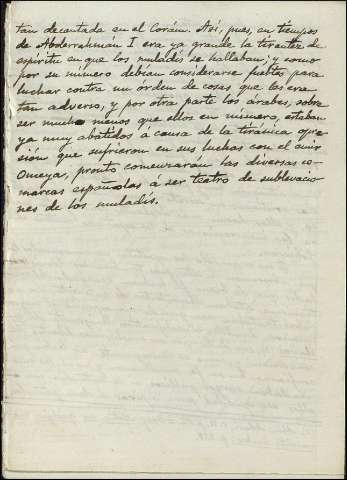 tan decantada en el Corán. Así, pues, en tiempos
de Abderrahmán I era ya grande la tirantez de
espíritu en que los muladís se hallaban; y como
por su número debian considerarse fuertes para
luchar contra un órden de cosas que les era
tan adverso; y por otra parte los árabes, sobre
ser mucho menos que ellos en número, estaban
ya muy abatidos á causa de la tiránica opre-
sión que sufrieron en sus luchas con el amir
Omeya, pronto comenzarán las diversas co-
marcas españolas á ser teatro de sublevacio-
nes de los muladís.